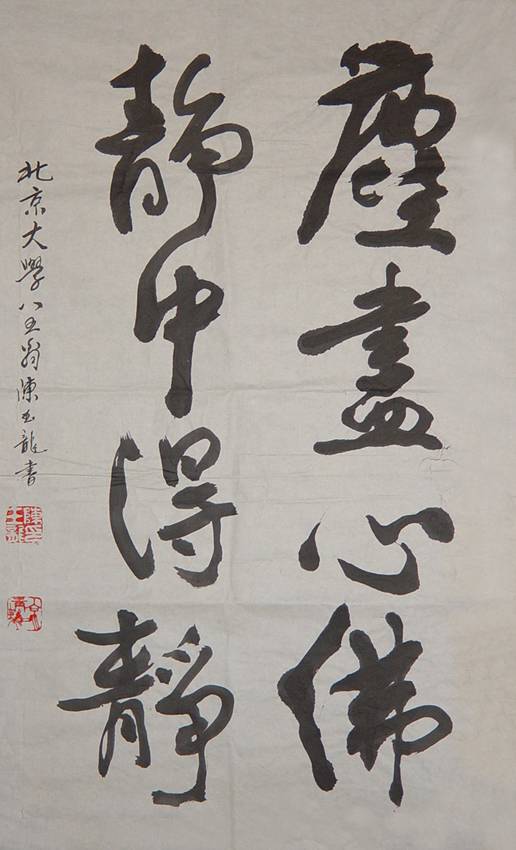 塵盡心佛
靜中得靜
北京大學八五翁陳玉龍書